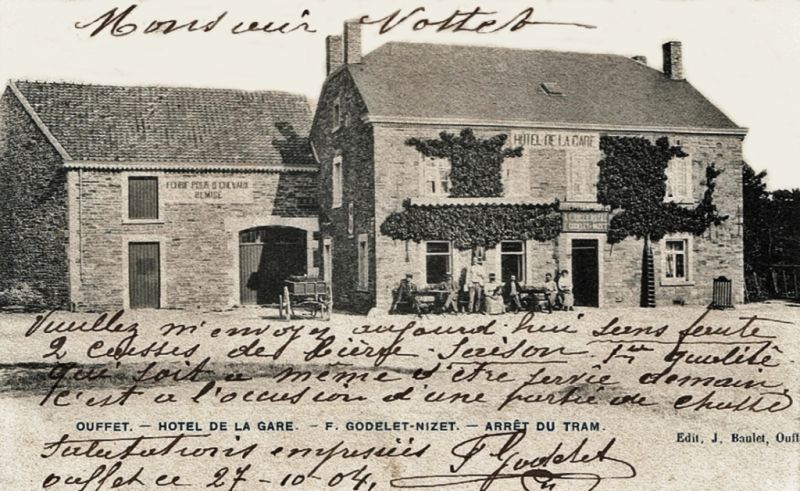 Monsieur Nottet
HÔTEL DE LA GARE
ECURIE POUR 8 CHEVAUX
REMISE
GODELET-NIZET
Veuillez m'envoyer aujourd'hui sans faute
2 caisses de bière Saison 1re qualité
qui soit a même d'être servie demain.
C'est a l'occasion d'une partie de chasse
OUFFET. — HOTEL DE LA GARE. — F. GODELET-NIZET. — ARRÊT DU TRAM.
Edit, J. Baulet, Ouff
Salutations empressées
Ouffet ce 27-10-04,
F Godelet